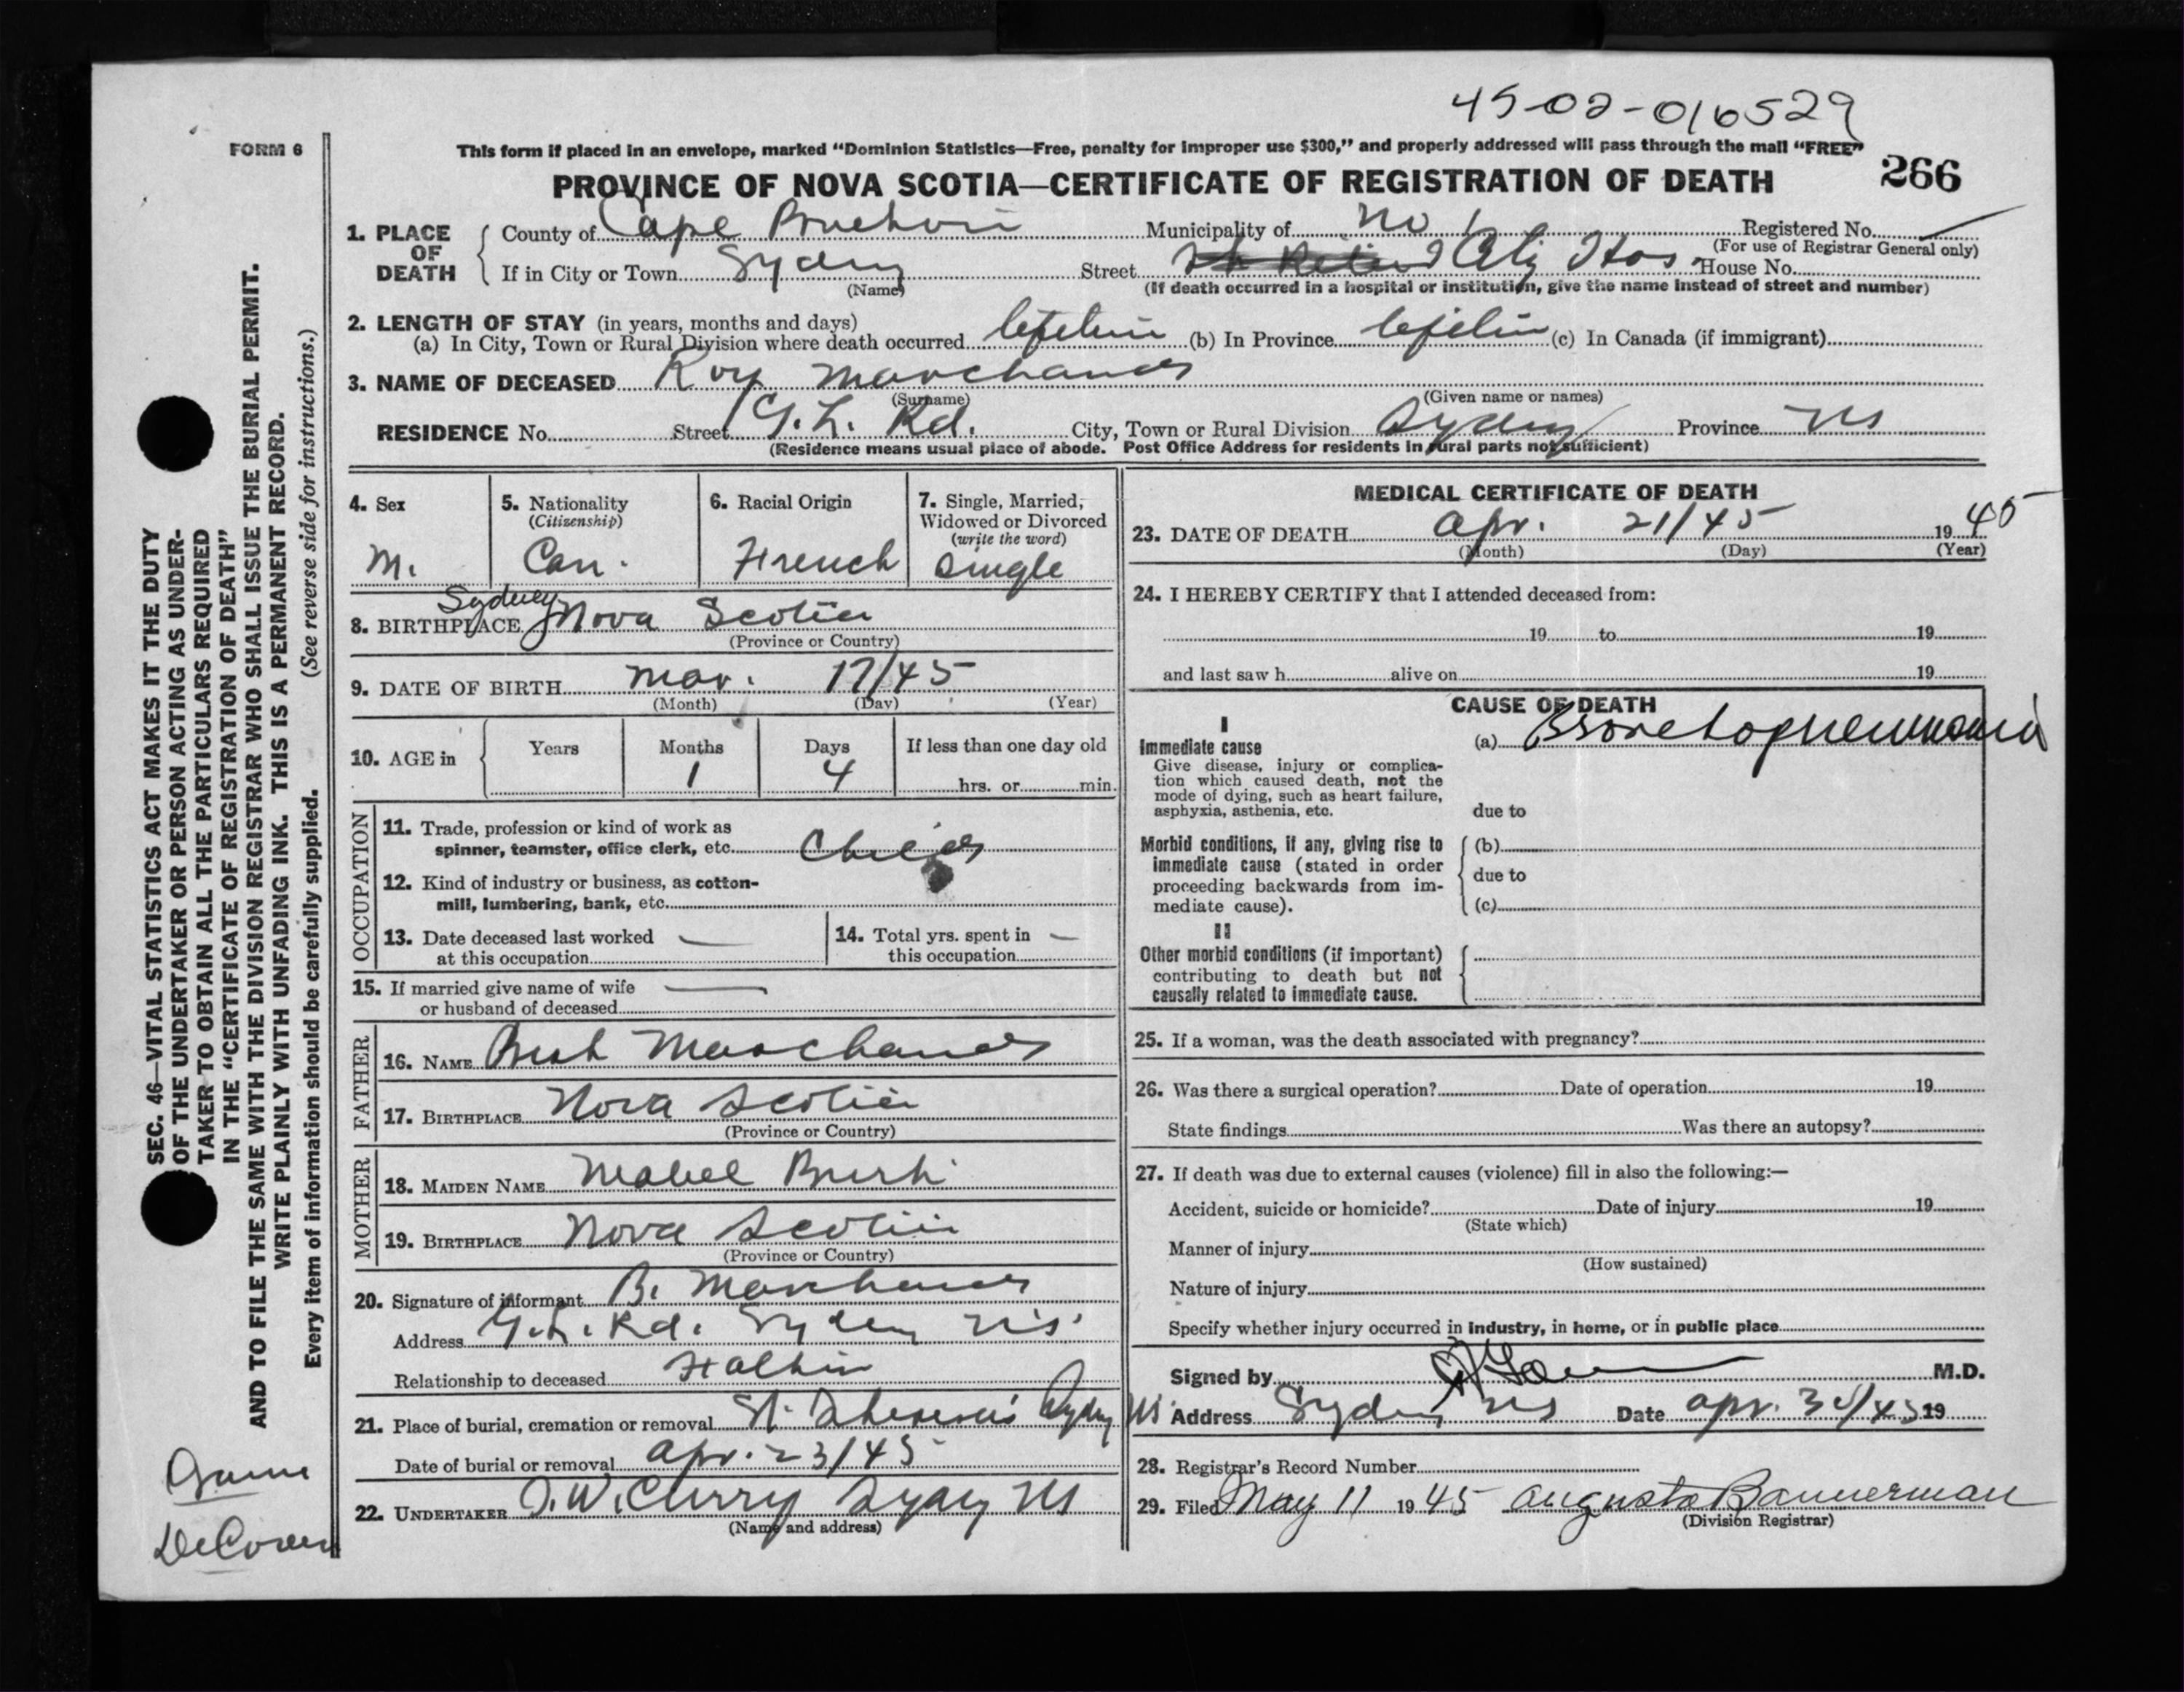 45-02-016529
FORM 6
This form if placed in an envelope, marked "Dominion Statistics—Free, penalty for improper use $300," and properly addressed will pass through the mail "FREE"
PROVINCE OF NOVA SCOTIA—CERTIFICATE OF REGISTRATION OF DEATH 266
1. PLACE OF DEATH County of Cape Breton Municipality of Registered No.
(For use of Registrar General only)
If in City or Town Sydney Street City Hos. House No.
(Name) (If death occurred in a hospital or institution, give the name instead of street and number)
2. LENGTH OF STAY (in years, months and days)
(a) In City, Town or Rural Division where death occurred lifetime (b) In Province lifetime (c) In Canada (if immigrant)
3. NAME OF DECEASED Roy Marchand
(Surname) (Given name or names)
RESIDENCE No. Street G. L. Rd. City, Town or Rural Division Sydney Province NS
(Residence means usual place of abode. Post Office Address for residents in rural parts not sufficient)
4. Sex M.
5. Nationality (Citizenship) Can.
6. Racial Origin French
7. Single, Married, Widowed or Divorced (write the word) Single
8. BIRTHPLACE Sydney Nova Scotia
(Province or Country)
9. DATE OF BIRTH Mar. 17/45
(Month) (Day) (Year)
10. AGE in Years Months 1 Days 4 If less than one day old hrs. or min.
OCCUPATION
11. Trade, profession or kind of work as
spinner, teamster, office clerk, etc. Child
12. Kind of industry or business, as cotton-
mill, lumbering, bank, etc.
13. Date deceased last worked — at this occupation
14. Total yrs. spent in — this occupation
15. If married give name of wife —
or husband of deceased
FATHER
16. NAME Marchand
17. BIRTHPLACE Nova Scotia
(Province or Country)
MOTHER
18. MAIDEN NAME Mabel
19. BIRTHPLACE Nova Scotia
(Province or Country)
20. Signature of informant B. Marchand
Address G. L. Rd. Sydney N.S.
Relationship to deceased Father
21. Place of burial, cremation or removal St. Theresa's Sydney NS
Date of burial or removal Apr. 23/45
22. UNDERTAKER J. W. Curry Sydney NS
(Name and address)
MEDICAL CERTIFICATE OF DEATH
23. DATE OF DEATH Apr. 21/45 1945
(Month) (Day) (Year)
24. I HEREBY CERTIFY that I attended deceased from:
19 to 19
and last saw h alive on 19
CAUSE OF DEATH
I
Immediate cause
Give disease, injury or complica-
tion which caused death, not the
mode of dying, such as heart failure,
asphyxia, asthenia, etc.
(a) Bronchopneumonia
due to
Morbid conditions, if any, giving rise to
immediate cause (stated in order
proceeding backwards from im-
mediate cause).
(b)
due to
(c)
II
Other morbid conditions (if important)
contributing to death but not
causally related to immediate cause.
25. If a woman, was the death associated with pregnancy?
26. Was there a surgical operation? Date of operation 19
State findings Was there an autopsy?
27. If death was due to external causes (violence) fill in also the following:—
Accident, suicide or homicide? Date of injury 19
(State which)
Manner of injury
(How sustained)
Nature of injury
Specify whether injury occurred in industry, in home, or in public place
Signed by M.D.
Address Sydney NS Date Apr. 30/45 19
28. Registrar's Record Number
29. Filed May 11 1945 Augusta Bannerman
(Division Registrar)
SEC. 46—VITAL STATISTICS ACT MAKES IT THE DUTY
OF THE UNDERTAKER OR PERSON ACTING AS UNDER-
TAKER TO OBTAIN ALL THE PARTICULARS REQUIRED
IN THE "CERTIFICATE OF REGISTRATION OF DEATH"
AND TO FILE THE SAME WITH THE DIVISION REGISTRAR WHO SHALL ISSUE THE BURIAL PERMIT.
WRITE PLAINLY WITH UNFADING INK. THIS IS A PERMANENT RECORD.
Every item of information should be carefully supplied. (See reverse side for instructions.)